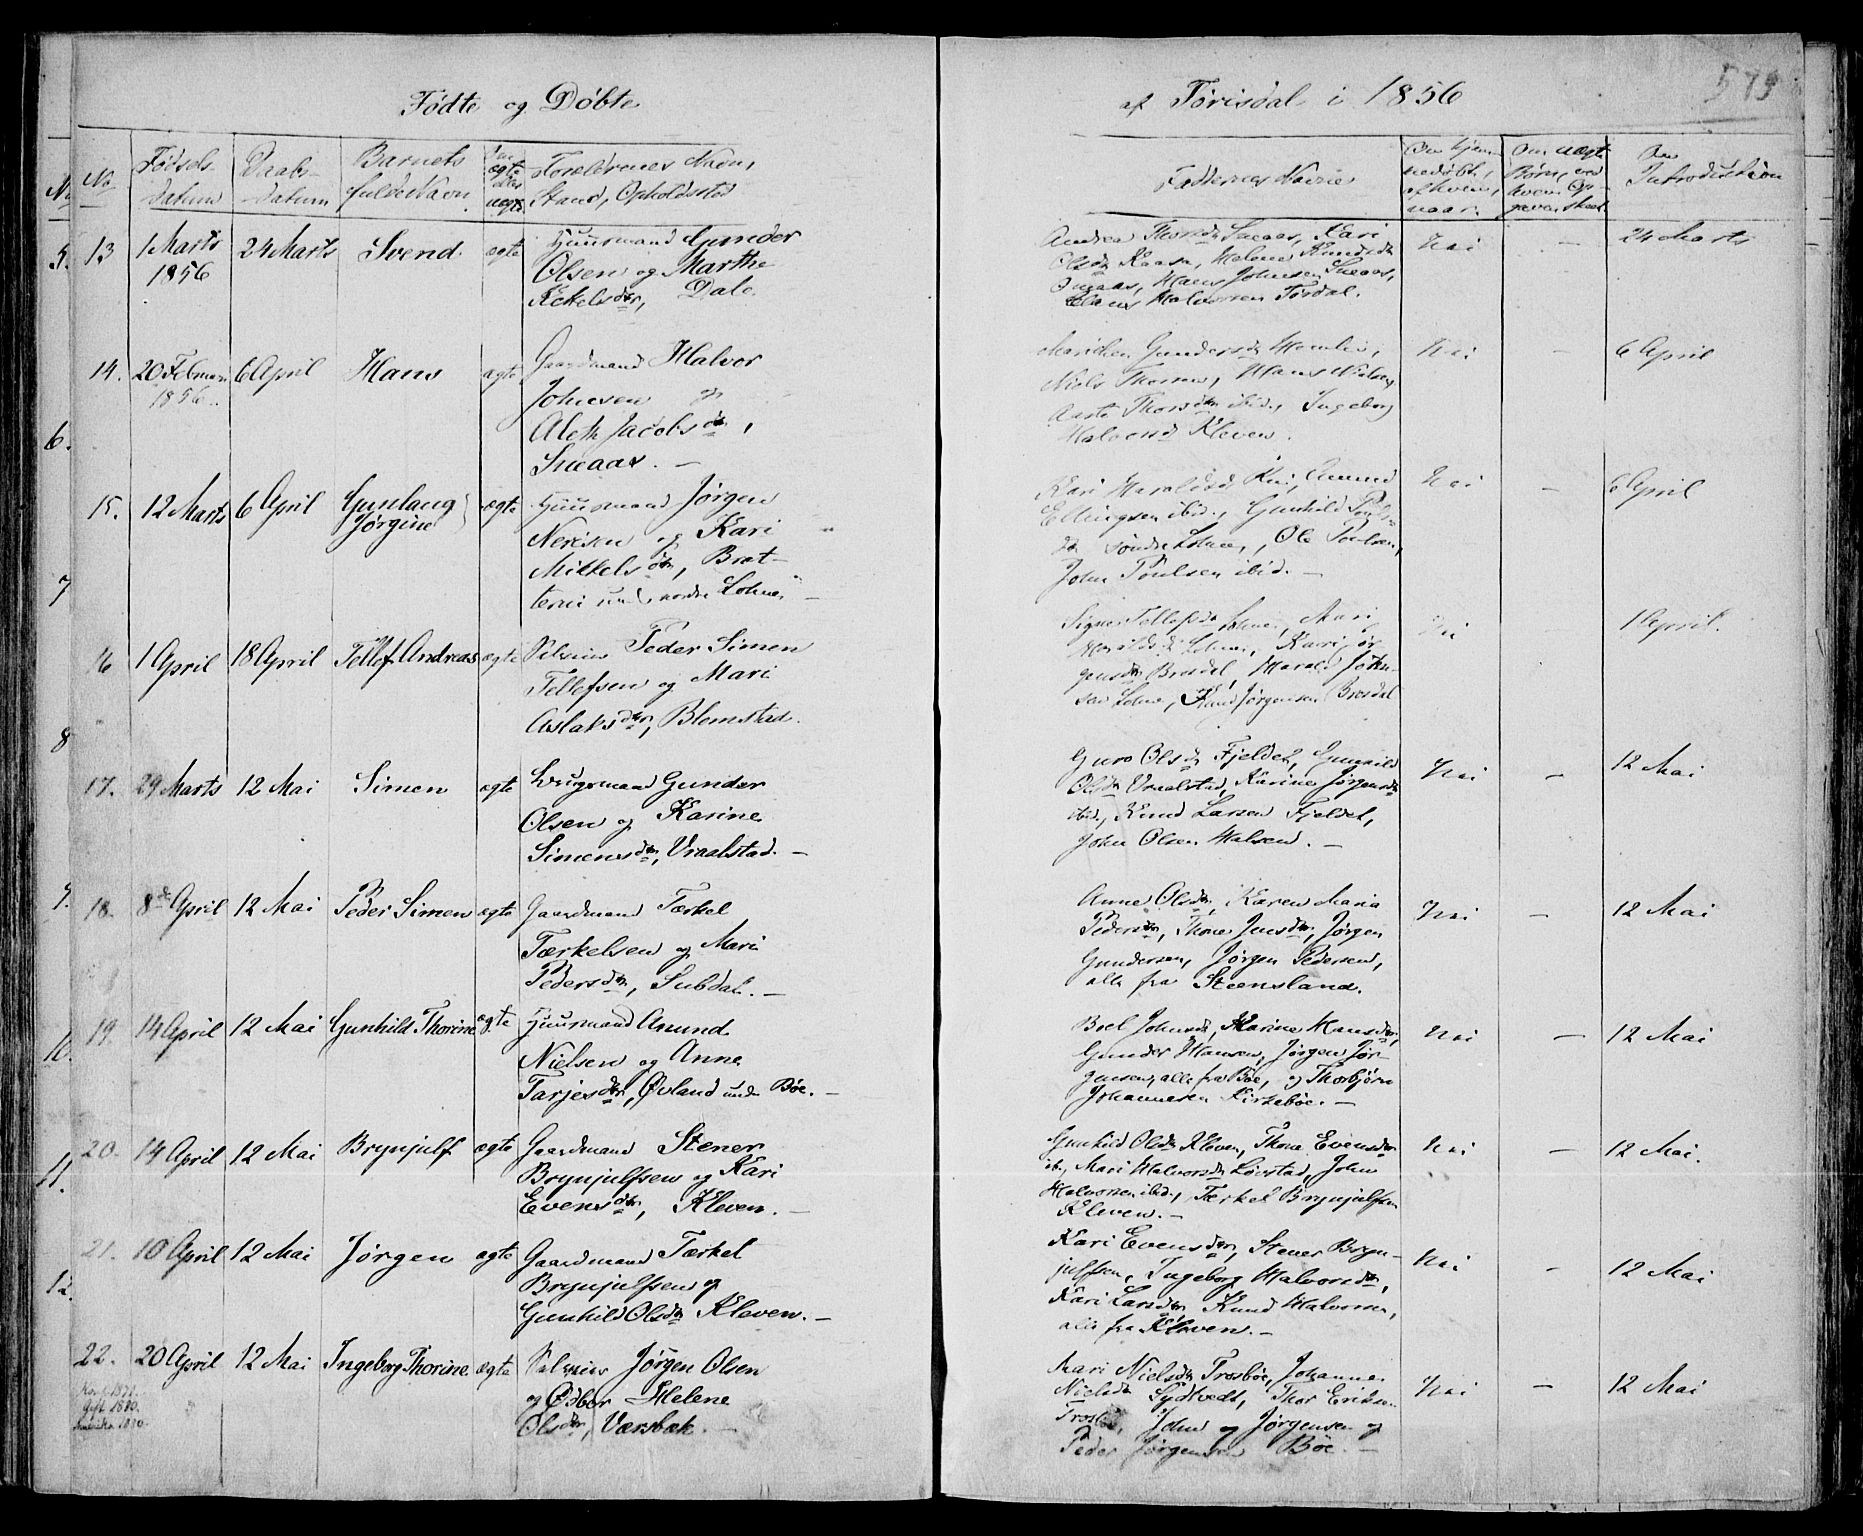 Fødte og Døbte
af Tørisdal i 1856
579
No
Fødsels-
datum
Daabs-
datum
Barnets
fulde Navn
ægte
eller
uægte
Forældrenes Navn,
Stand, Opholdssted
Faddernes Navne
Om hjem-
medøbt,
af hvem,
naar
Om uægte
Børn, ved
hvem Op-
gaven skeet
Om
Introduction
13
1 Marts
1856
24 Marts
Svend
ægte
Huusmand Gunder
Olsen og Marthe
Kjetelsdtr, Dale
Andrea Thorsdtr Sneaas, Kari
Olsdtr Kaasa, Halvor Knudsen
Sneaas, Hans Johnsen Sneaas,
Claus Halvorsen Tørdal.
Nei
—
24 Marts
14.
20 Februar
1856
6 April
Hans
ægte
Gaardmand Halvor
Johnsen og
Aleth Jacobsdtr,
Sneaas. —
Marichen Gundersdtr
Niels Thorsen, Hans Nielsen
Aaste Thorsdtr ibid., Ingeborg
Halvorsd. Kleven.
Nei
—
6 April
15.
12 Marts
6 April
Gunlaug
Jørgine
ægte
Huusmand Jørgen
Nerisen og Kari
Mikkelsdtr, Brat-
terui und. nordre Lohne, —
Kari Haraldsd. Amund
Ellingsen ibid., Gunhild Pouls-
dtr søndre Lohne, Ole Poulsen,
John Poulsen ibid. —
Nei
—
6 April
16
1 April
18 April
Tellef Andreas
ægte
Selveier Peder Simen
Tellefsen og Mari
Aslaksdtr, Blomstad.
Signe Tellefsdtr Lohne, Mari
Haraldsd. Lohne, Kari Jør-
gensdtr Brosdal, Harald John-
sen Lohne, Knud Jørgensen Brosdal
Nei
1 April.
17.
29 Marts
12 Mai
Simen
ægte
Brugsmand Gunder
Olsen og Karine
Simensdtr, Vraalstad. —
Guro Olsdtr Fjeldet, Gunhild
Olsdtr Vraalstad, Karine Jørgensdtr
ibid., Knud Larsen Fjeldet,
John Olsen Halvsend. —
Nei
—
12 Mai
18.
8de April
12 Mai
Peder Simen
ægte
Gaardmand Tærkel
Tærkelsen og Mari
Pedersdtr, Subdal. —
Anne Olsdtr, Karen Maria
Pedersdtr, Thone Jensdtr, Jørgen
Gundersen, Jørgen Pedersen,
alle fra Steensland.
Nei
—
12 Mai
19.
14 April
12 Mai
Gunhild Thorine
ægte
Huusmand Anund
Nielsen og Anne
Tarjesdtr, Øvland under Bøe. —
Boel Johnsdtr, Karine Hansdtr,
Gunder Hansen, Jørgen Jør-
gensen, alle fra Bøe, og Thorbjørn
Johannesen Kirkebøe. —
Nei
—
12 Mai
20.
14 April
12 Mai
Brynjulf
ægte
Gaardmand Stener
Brynjulfsen og Kari
Evensdtr, Kleven. —
Gunhild Olsdtr Kleven, Thone Evensdtr
ib., Mari Halvorsdtr Løvstad, John
Halvorsen ibid., Tærkel Brynjulfsen
Kleven. —
Nei
—
12 Mai.
21.
10 April
12 Mai
Jørgen
ægte
Gaardmand Tærkel
Brynjulfsen og
Gunhild Olsdtr Kleven. —
Kari Evensdtr, Stener Bryn-
julfsen, Ingeborg Halvorsdtr,
Kari Larsdtr, Knud Halvorsen,
alle fra Kleven. —
Nei
—
12 Mai
22.
20 April
12 Mai
Ingeborg Thorine
ægte
Selveier Jørgen Olsen
og Helene
Olsdtr, Værsbak. —
Mari Nielsdtr Trosbøe, Johanne
Nielsdtr Sydtvedt, Thor Eriksen
Trosbøe, John og Jørgensen og
Peder Jørgensen Bøe. —
Nei
—
12 Mai
Konf. 1871.
Gift 1880.
Amerika 1880.
5.
6.
7
8
9.
10.
11.
12.